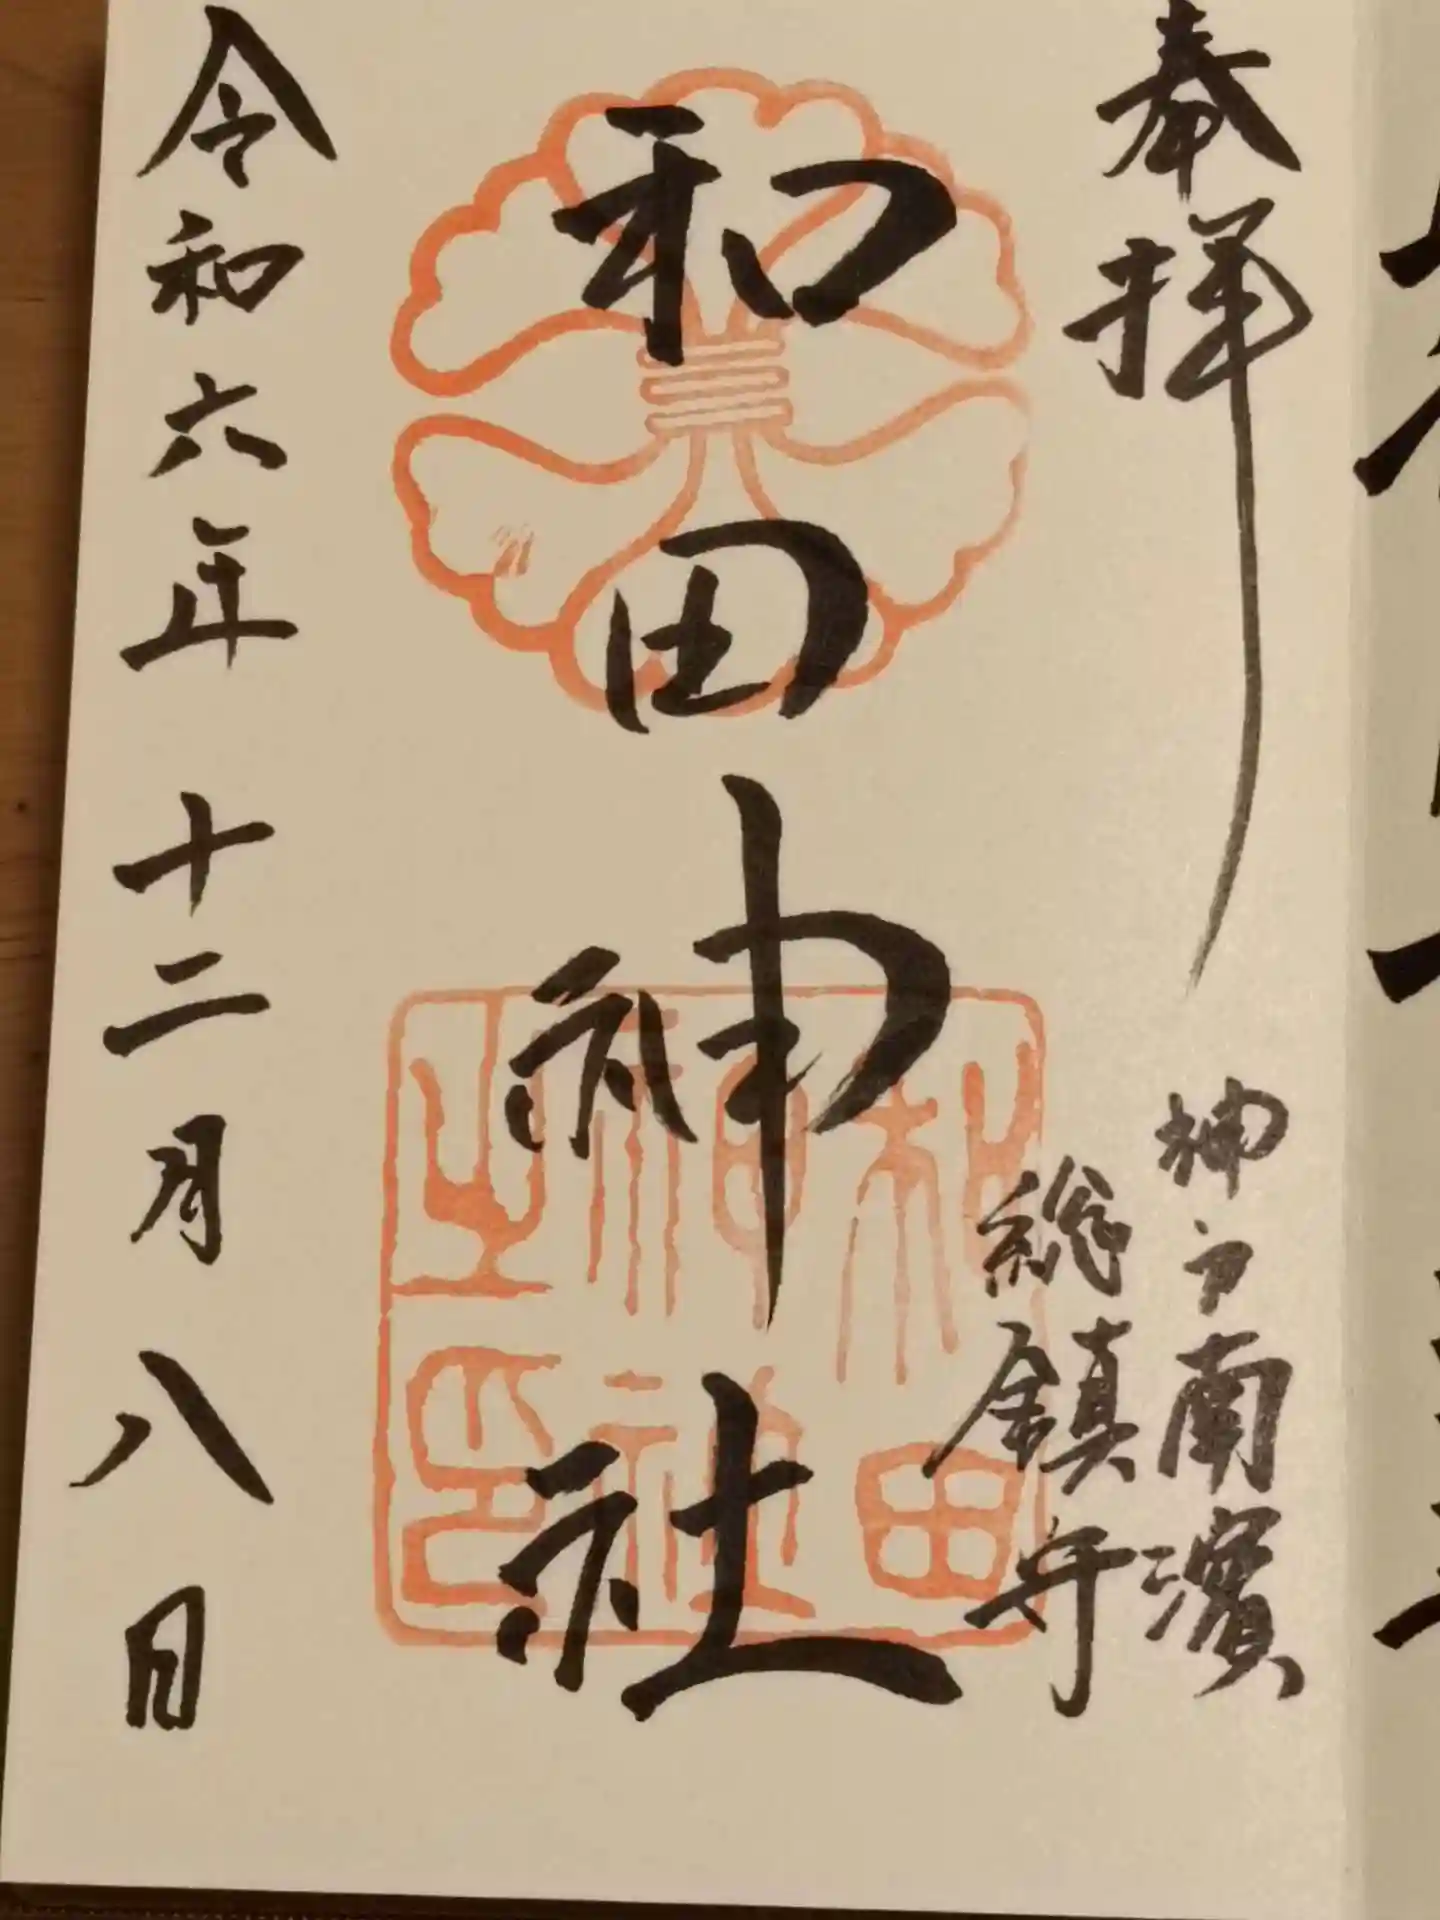 奉拝
神戸南濱
総鎮守
和田神社
和田
神社
之印
令和六年十二月八日